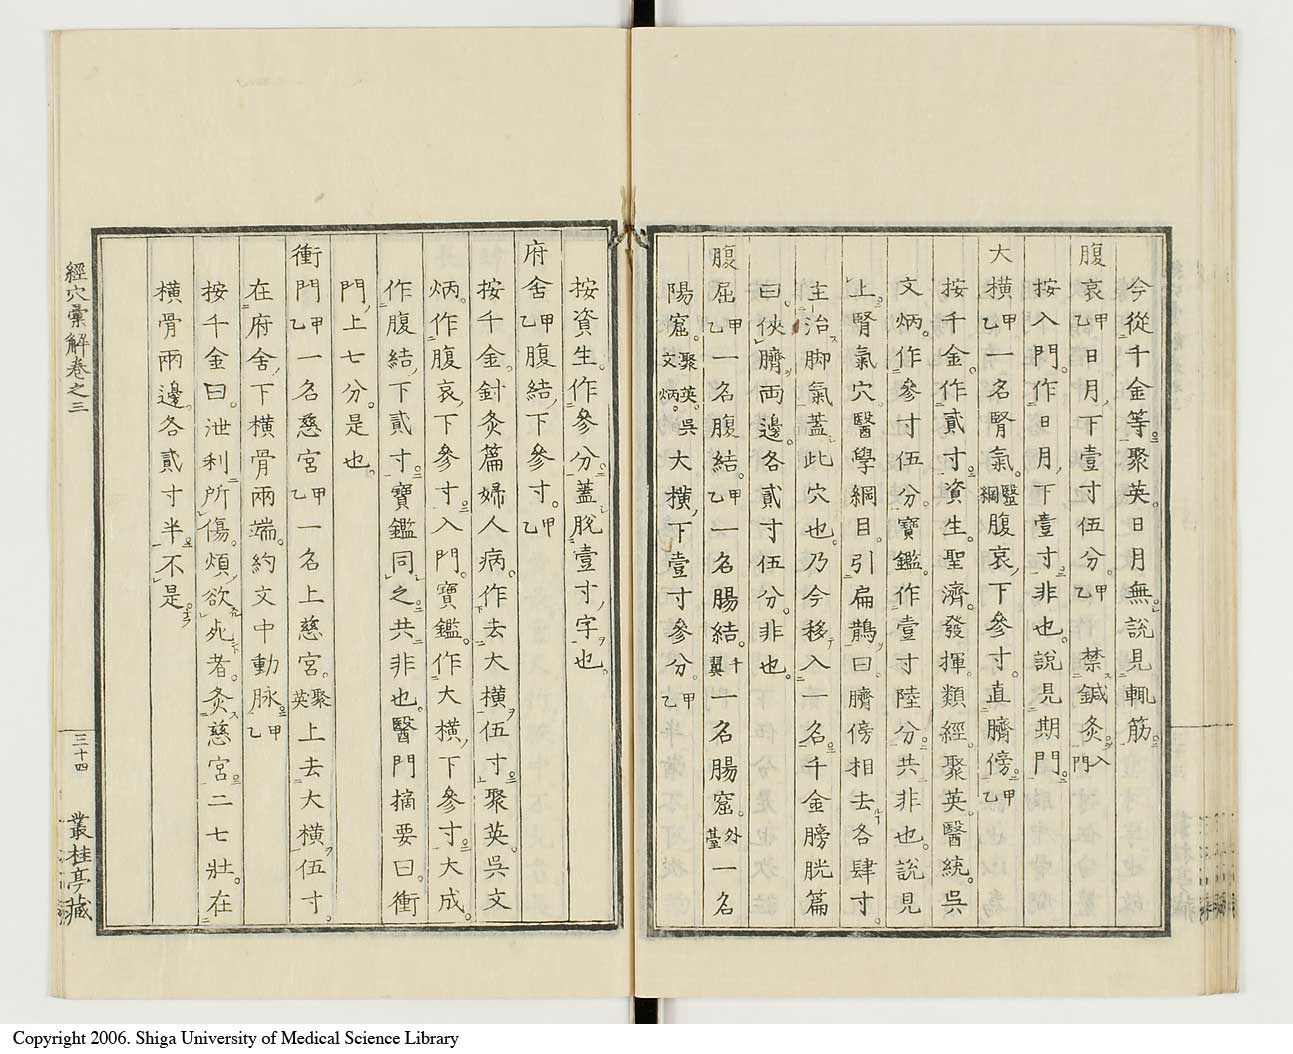 今從千金等聚英日月無說見輒筋
腹哀甲乙日月下壹寸伍分甲乙禁鍼灸入門
按入門作日月下壹寸非也說見期門
大橫甲乙一名腎氣醫綱腹哀下參寸直臍傍甲乙
按千金作貳寸資生聖濟發揮類經聚英醫統吳
文炳作參寸伍分寶鑑作壹寸陸分共非也說見
上腎氣穴醫學綱目引扁鵲曰臍傍相去各肆寸
主治脚氣蓋此穴也乃今移入一名千金膀胱篇
曰俠臍両邊各貳寸伍分非也
腹屈甲乙一名腹結甲乙一名腸結千翼一名腸窟外臺一名
陽窟聚英吳文炳大橫下壹寸參分甲乙
按資生作參分蓋脫壹寸字也
府舍甲乙腹結下參寸甲乙
按千金針灸篇婦人病作去大橫伍寸聚英吳文
炳作腹哀下參寸入門寶鑑作大橫下參寸大成
作腹結下貳寸寶鑑同之共非也醫門摘要曰衝
門上七分是也
衝門甲乙一名慈宮甲乙一名上慈宮聚英上去大橫伍寸
在府舍下橫骨兩端約文中動脉甲乙
按千金曰泄利所傷煩欲死者灸慈宮二七壯在
橫骨兩邊各貳寸半不是
經穴彙解卷之三
三十四
叢桂亭藏
Copyright 2006. Shiga University of Medical Science Library